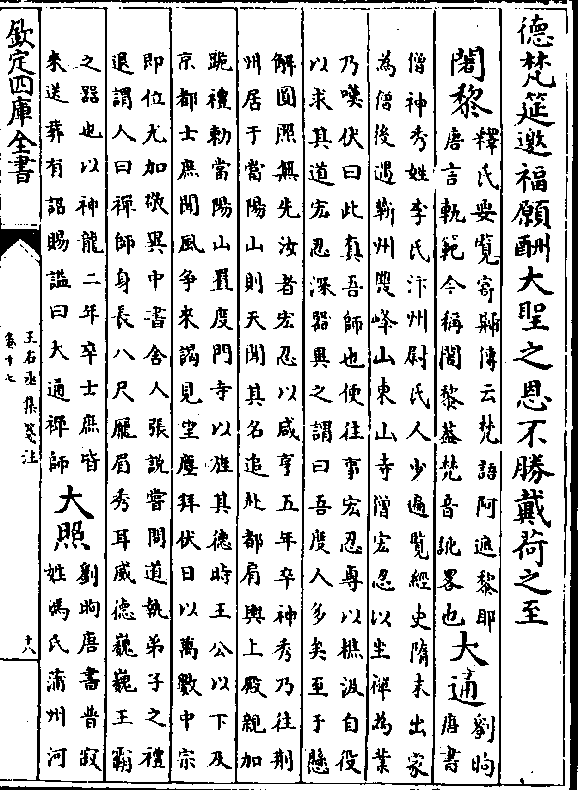 德梵筵邀福願酬大聖之恩不勝戴荷之至
闍黎
釋氏要覽寄歸傳云梵語阿遮黎耶
唐言軌範今稱闍黎葢梵音訛畧也
大通
劉昫
唐書
僧神秀姓李氏汴州尉氏人少遍覽經史隋末出家
為僧後遇蘄州雙峰山東山寺僧宏忍以坐禪為業
乃嘆伏曰此真吾師也便往事宏忍專以樵汲自役
以求其道宏忍深器異之謂曰吾度人多矣至于懸
解圓照無先汝者宏忍以咸亨五年卒神秀乃往荆
州居于當陽山則天聞其名追赴都肩輿上殿親加
跪禮勅當陽山置度門寺以旌其德時王公以下及
京都士庶聞風争來謁見望塵拜伏日以萬數中宗
即位尤加敬異中書舍人張說嘗問道執弟子之禮
退謂人曰禪師身長八尺厖眉秀耳威德巍巍王霸
之器也以神龍二年卒士庶皆
來送葬有詔賜諡曰大通禪師
大照
劉昫唐書普寂
姓馮氏蒲州河
欽定四庫全書
王右丞集箋注
卷十七
十八